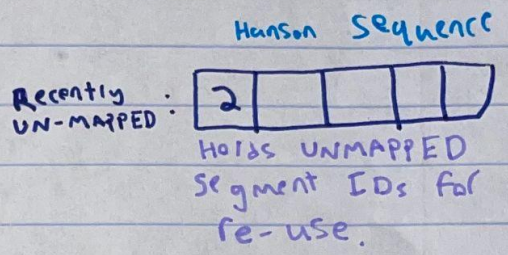 Hanson Sequence
Recently
UN-MAPPED :
2
Holds UNMAPPED
Segment IDs for
re-use.